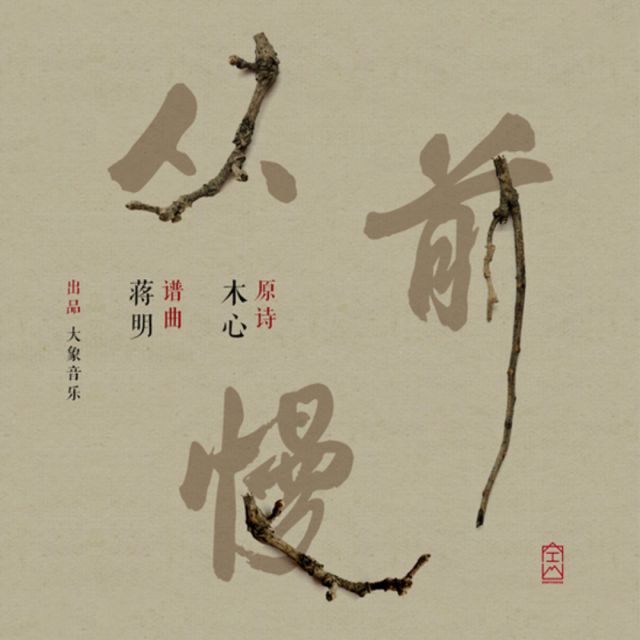 从
前
慢
原诗
木心
谱曲
蒋明
出品 大象音乐